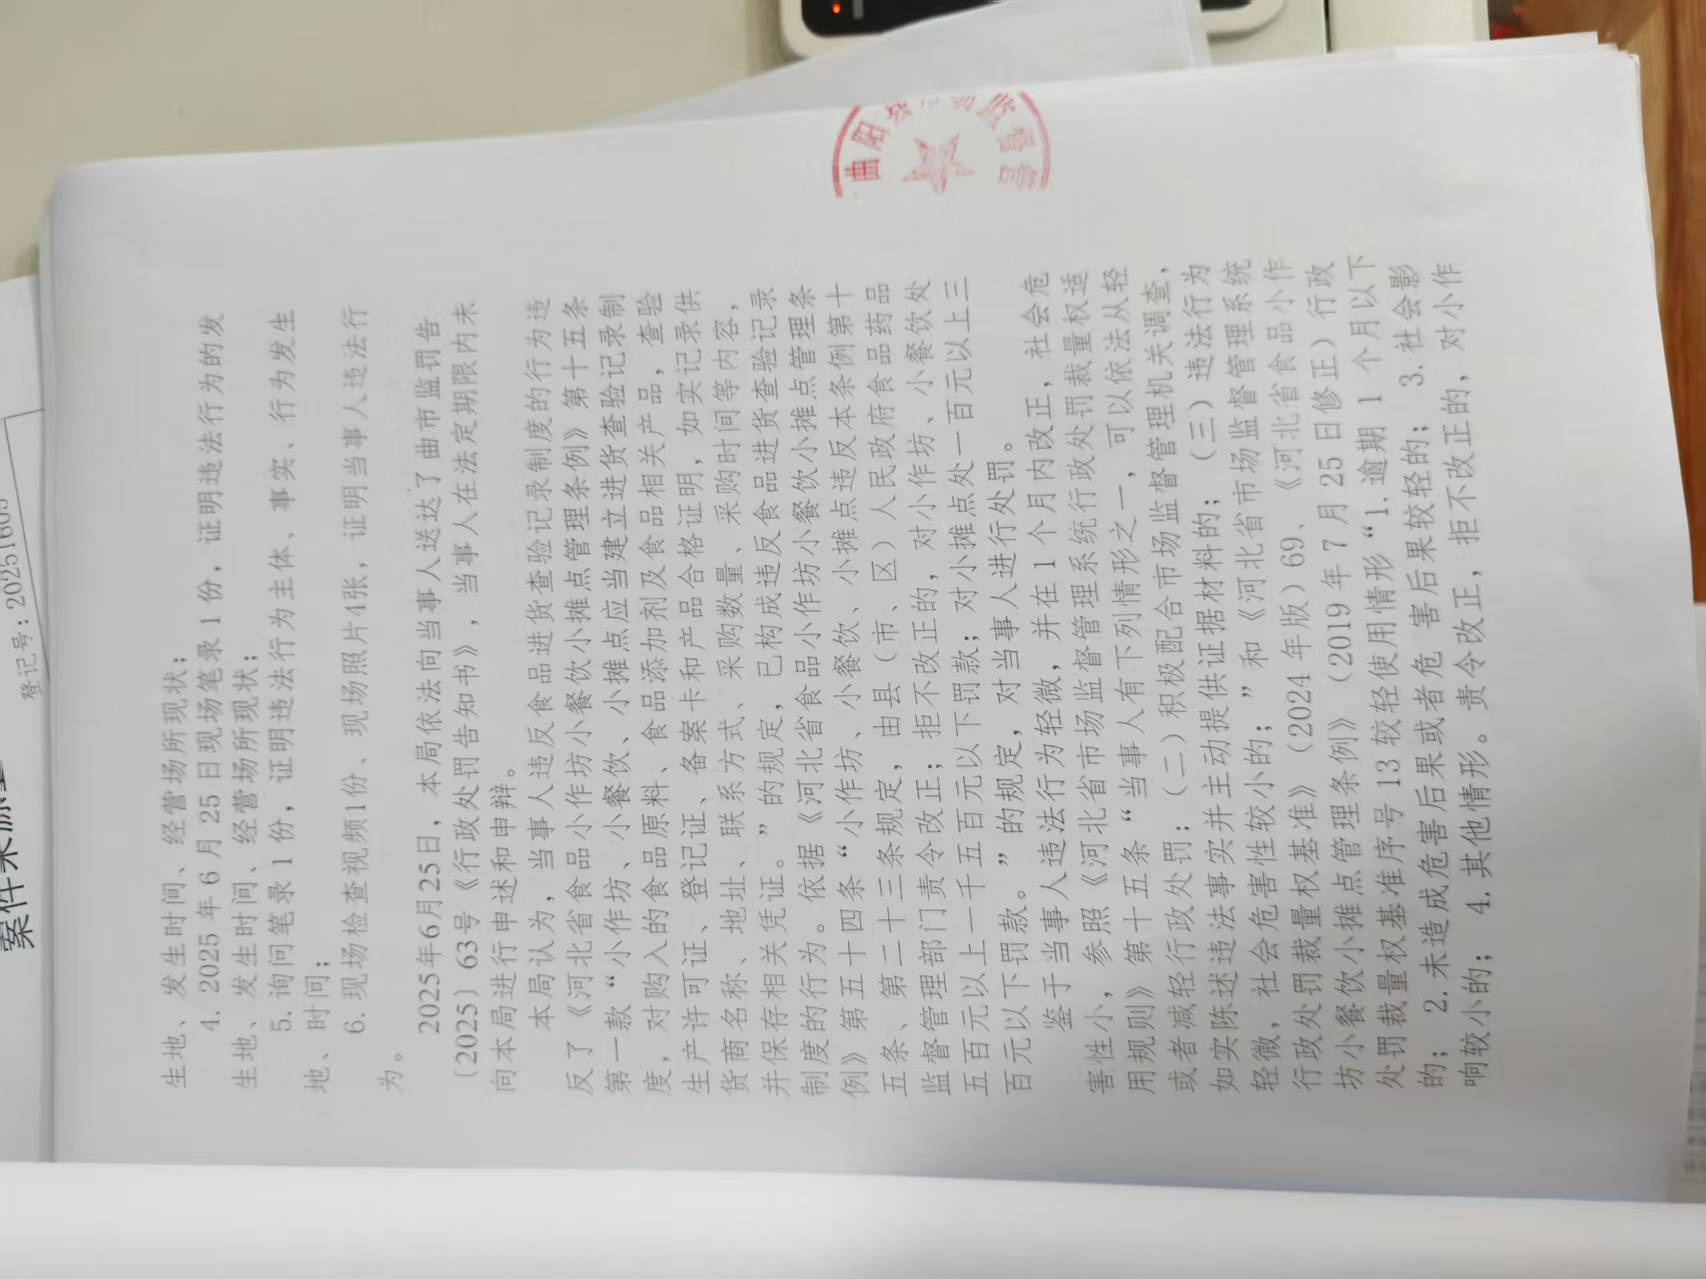 登记号：20251605
生地、发生时间、经营场所现状；
4. 2025 年 6 月 25 日现场笔录 1 份，证明违法行为的发
生地、发生时间、经营场所现状；
5. 询问笔录 1 份，证明违法行为主体、事实、行为发生
地、时间；
6. 现场检查视频1份、现场照片4张，证明当事人违法行
为。
2025年6月25日，本局依法向当事人送达了曲市监罚告
〔2025〕63号《行政处罚告知书》，当事人在法定期限内未
向本局进行申述和申辩。
本局认为，当事人违反食品进货查验记录制度的行为违
反了《河北省食品小作坊小餐饮小摊点管理条例》第十五条
第一款“小作坊、小餐饮、小摊点应当建立进货查验记录制
度，对购入的食品原料、食品添加剂及食品相关产品，查验
生产许可证、登记证、备案卡和产品合格证明，如实记录供
货商名称、地址、联系方式、采购数量、采购时间等内容，
并保存相关凭证。”的规定，已构成违反食品进货查验记录
制度的行为。依据《河北省食品小作坊小餐饮小摊点管理条
例》第五十四条“小作坊、小餐饮、小摊点违反本条例第十
五条、第二十三条规定，由县（市、区）人民政府食品药品
监督管理部门责令改正；拒不改正的，对小作坊、小餐饮处
五百元以上一千五百元以下罚款；对小摊点处一百元以上三
百元以下罚款。”的规定，对当事人进行处罚。
鉴于当事人违法行为轻微，并在 1 个月内改正，社会危
害性小，参照《河北省市场监督管理系统行政处罚裁量权适
用规则》第十五条“当事人有下列情形之一，可以依法从轻
或者减轻行政处罚：（二）积极配合市场监督管理机关调查，
如实陈述违法事实并主动提供证据材料的；（三）违法行为
轻微，社会危害性较小的；”和《河北省市场监督管理系统
行政处罚裁量权基准》（2024 年版）69、《河北省食品小作
坊小餐饮小摊点管理条例》（2019 年 7 月 25 日修正）行政
处罚裁量权基准序号 13 较轻使用情形“1. 逾期 1 个月以下
的；2. 未造成危害后果或者危 害后果较轻的；3. 社会影
响较小的；4. 其他情形。责令改正，拒不改正的，对小作